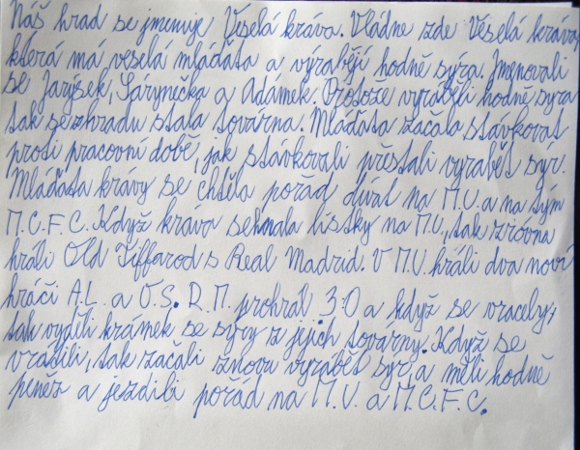 Náš hrad se jmenuje Veselá kráva. Vládne zde Veselá kráva
která má veselá mláďata a vyrábějí hodně sýra. Jmenovali
se Jarýsek, Sárynečka a Adámek. Protože vyráběli hodně sýra
tak se z hradu stala továrna. Mláďata začala stávkovat
proti pracovní době, jak stávkovali přestali vyrábět sýr.
Mláďata krávy se chtěla pořád dívat na M.U. a na tým
M.C.F.C. Když kráva sehnala lístky na M.U., tak zrovna
hráli Old Tiffarod s Real Madrid. V M.U. hráli dva noví
hráči A.L. a V.S. R.M. prohrál 3:0 a když se vracely,
tak vyděli krámek se sýry z jejich továrny. Když se
vrátili, tak začali znovu vyrábět sýr, a měli hodně
peněz a jezdili pořád na M.U. a M.C.F.C.